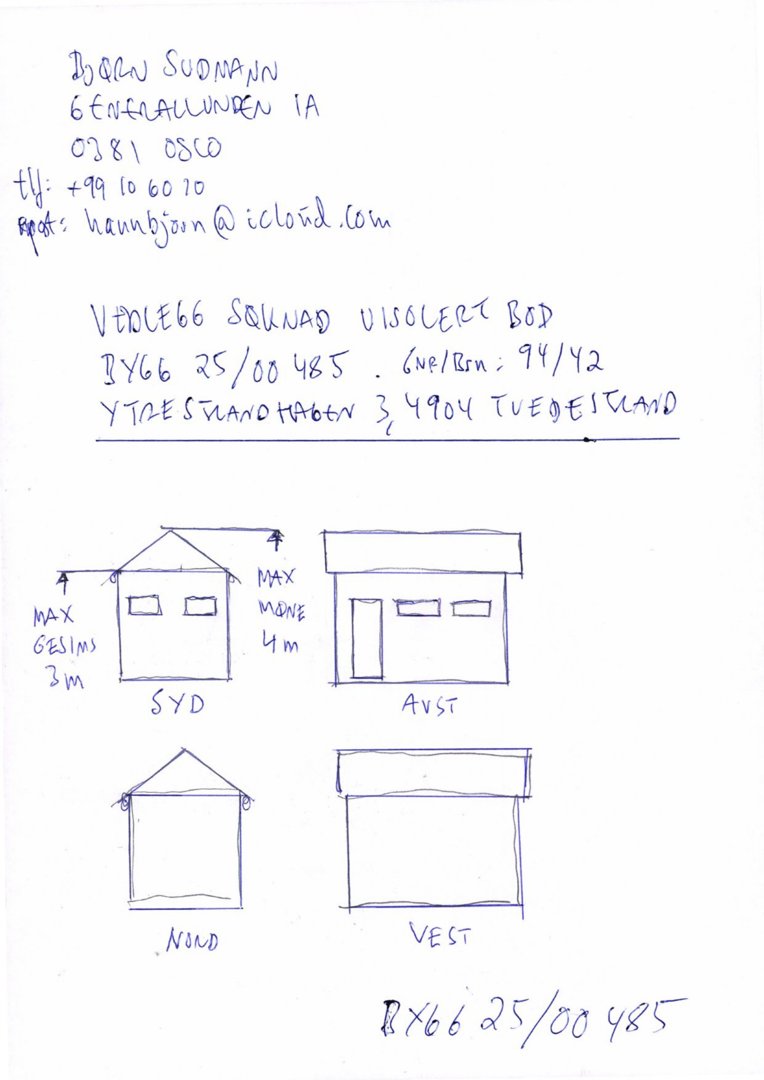 BJØRN SUDMANN
GENERALLUNDEN 1A
0381 OSLO
tlf: +99 10 60 20
epost: hannbjorn@icloud.com
VEDLEGG SØKNAD UISOLERT BOD
BYGG 25/00485. GNR/Brn: 94/42
YTRESTRANDHAGEN 3, 4904 TVEDESTRAND
MAX
GESIMS
3m
MAX
MØNE
4m
SYD
ØVST
NORD
VEST
BYGG 25/00485